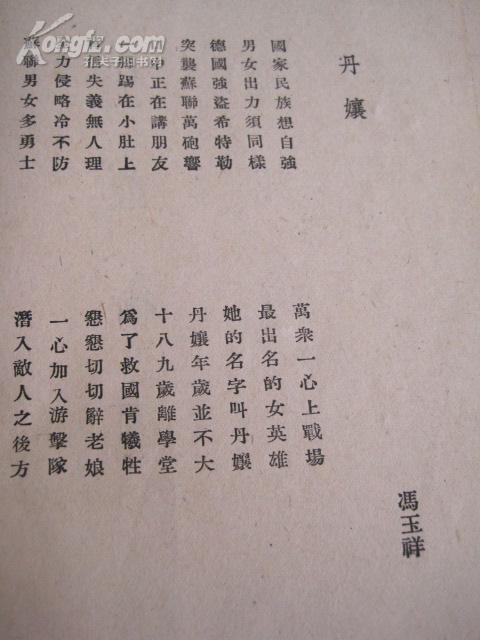 Kongfz.com
孔夫子旧书网
丹孃
馮玉祥
國家民族想自強
男女出力須同樣
德國強盜希特勒
突襲蘇聯萬砲響
中正在講朋友
踢在小肚上
失義無人理
力侵略冷不防
蘇聯男女多勇士
萬衆一心上戰場
最出名的女英雄
她的名字叫丹孃
丹孃年歲並不大
十八九歲離學堂
爲了救國肯犧牲
懇懇切切辭老娘
一心加入游擊隊
潛入敵人之後方